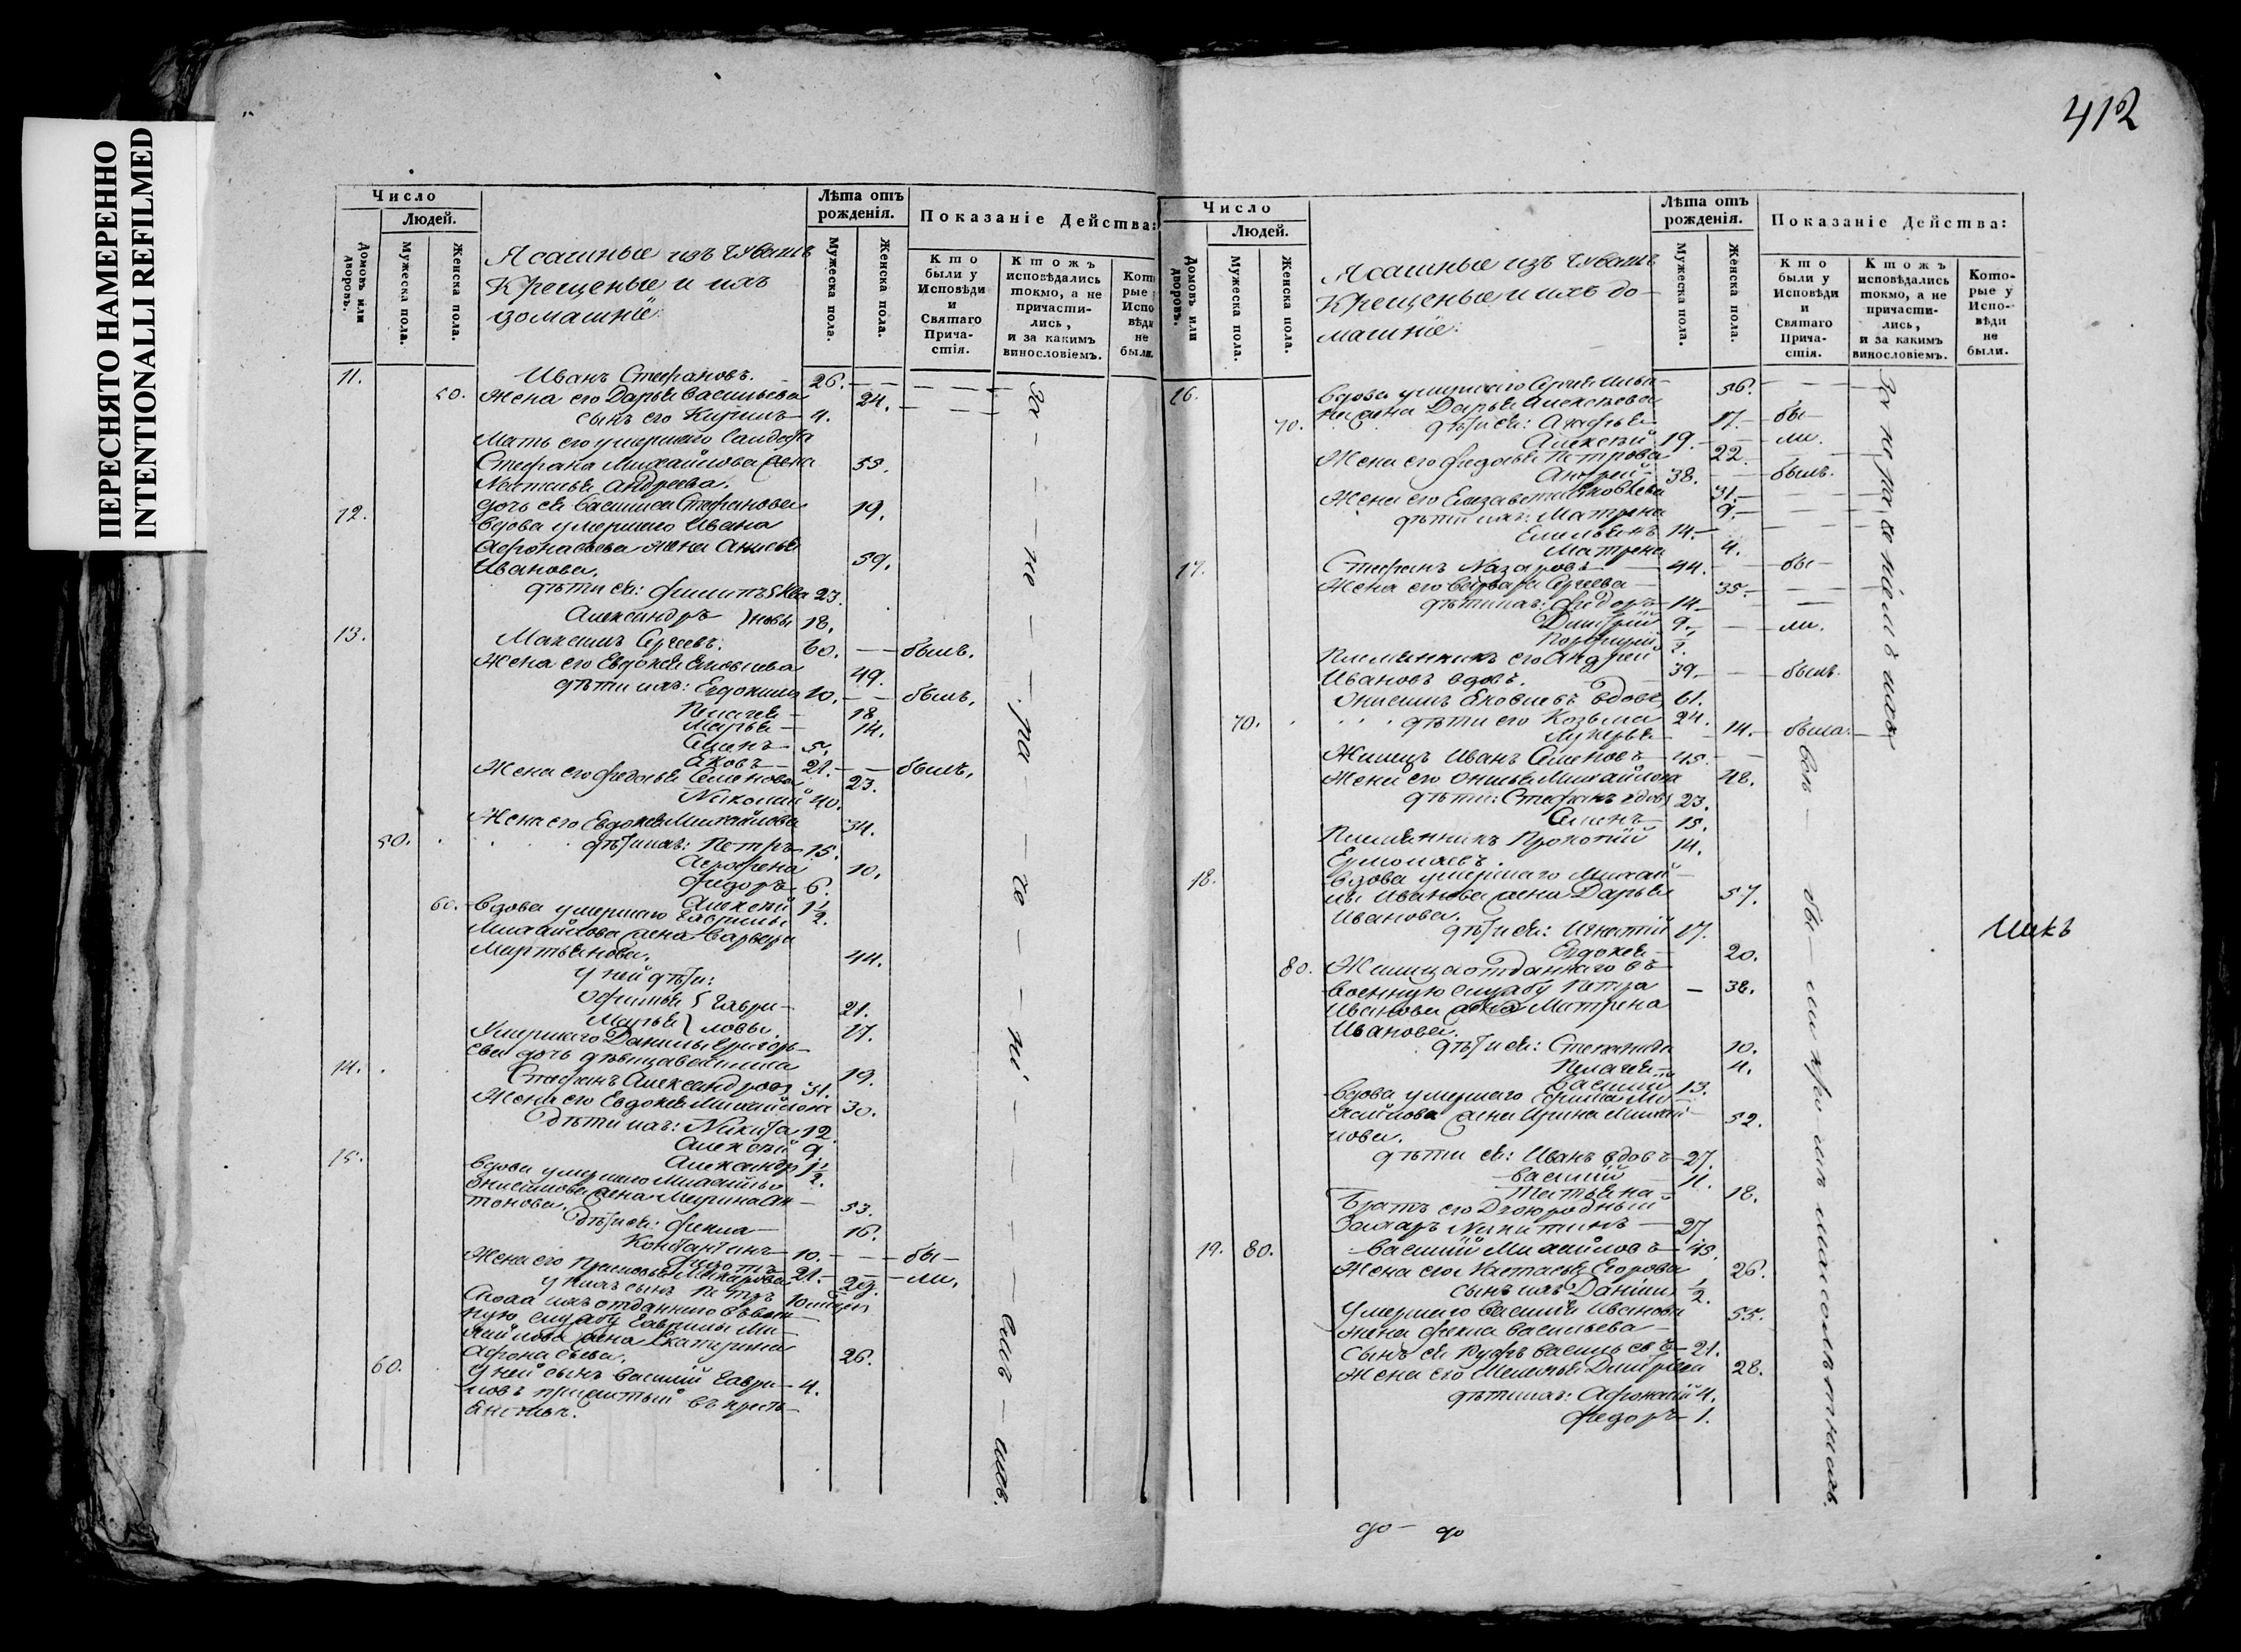 ПЕРЕСНЯТО НАМЕРЕННО
INTENTIONALLI REFILMED
412
Число
Людей.
Домовъ или дворовъ.
Мужеска пола.
Женска пола.
Ясашные изъ чувашъ
крещеные и ихъ
домашніе:
Лѣта отъ рожденія.
Мужеска пола.
Женска пола.
Показаніе Действа:
Кто были у Исповѣди и Святаго Причастія.
Ктожъ исповѣдались токмо, а не причастились, и за какимъ винословіемъ.
Которые Исповѣди не были.
11. Иванъ Стефановъ. 26.
50. Жена его Дарья Васильева 24.
сынъ его Кирилъ 4.
Мать его умершаго солдата
Стефана Михайлова жена 55.
Наталья Андреева.
дочь ея Василиса Стефанова 19.
12. Вдова умершаго Ивана
Афонасьева жена Анисья
Иванова. 59.
дѣти ея: Филипъ Ива 23.
Александръ новы 18.
13. Максимъ Сергеевъ. 60. былъ.
Жена его Евдокея Яковлева 49.
дѣти ихъ: Евдокимъ 10. былъ.
Пелагея 18.
Марья 14.
Семенъ 5.
Яковъ 21. былъ.
Жена его Федосья Семенова 23.
Николай 40.
Жена его Евдокея Михайлова 34.
50. дѣти ихъ: Петръ 15.
Аграфена 10.
Федоръ 6.
Алексѣй 1 1/2.
60. Вдова умершаго Гаврилы
Михайлова жена Варвара
Мартьянова. 44.
У ней дѣти:
Офимья Гаври- 21.
Марья ловы. 17.
Умершаго Данилы Григорь-
ева дочь дѣвица Василиса 19.
14. Стефанъ Александровъ 31.
Жена его Евдокея Михайлова 30.
Дѣти ихъ: Никита 12.
Алексѣй 9.
Александръ 1 1/2.
15. Вдова умершаго Михайлы
Онисимова жена Марина Ан-
тонова. 53.
Дѣти ея: Фекла 16.
Константинъ 10. бы-
21. ли.
Жена его Прасковья Макарова 20.
у нихъ сынъ Петръ 10 недѣл
Сноха ихъ отданнаго въ воен-
ную службу Гаврилы Ми-
хайлова жена Екатерина
Афонасьева. 26.
60. У ней сынъ Василій Гаври- 4.
ловъ прижитый въ кресть-
янствѣ.
За не ра че ні ем ихъ.
Число
Людей.
Домовъ или дворовъ.
Мужеска пола.
Женска пола.
Ясашные изъ чувашъ
Крещеные и ихъ до-
машніе:
Лѣта отъ рожденія.
Мужеска пола.
Женска пола.
Показаніе Действа:
Кто были у Исповѣди и Святаго Причастія.
Ктожъ исповѣдались токмо, а не причастились, и за какимъ винословіемъ.
Которые у Исповѣди не были.
16. Вдова умершаго Сергея Ильи-
на жена Дарья Алексѣева 56.
70. дѣти ея: Агафья 17. бы-
Алексѣй 19. ли.
Жена его Федосья Петрова 22.
Андрей 38. былъ.
Жена его Елизавета Яковлева 31.
дѣти ихъ: Матрена 9.
Емельянъ 14.
Матрена 4.
17. Стефанъ Назаровъ 44. бы-
Жена его Варвара Сергеева 35.
дѣти ихъ: Федоръ 14.
Дмитрій 9. ли.
Порфирій 1/2.
Племянникъ его Андрей
Ивановъ вдовъ. 39. былъ.
Онисимъ Яковлевъ вдовъ 61.
70. дѣти его Козьма 24.
Лукерья 14. была.
Жилецъ Иванъ Семеновъ 45.
Жена его Онисья Михайлова 48.
дѣти: Стефанъ вдовъ 23.
Семенъ 15.
Племянникъ Прокопій 14.
Ермолаевъ.
18. Вдова умершаго Михай-
лы Иванова жена Дарья 57.
Иванова.
дѣти ея: Игнатій 17.
Евдокея 20.
80. Жилица отданнаго въ
военную службу Петра 38.
Иванова жена Матрена
Иванова.
дѣти ея: Степанида 10.
Пелагея 4.
Василій 13.
Вдова умершаго Ефима Ми-
хайлова жена Ирина Михай- 52.
лова.
дѣти ея: Иванъ вдовъ 27.
Василій 11.
Татьяна 18.
Братъ его Двоюродный
Захаръ Никитинъ 27
19. 80. Василій Михайловъ 45.
Жена его Настасья Егорова 26.
сынъ ихъ Данілъ 1/2.
Умершаго Василья Иванова 55.
жена Фекла Васильева
Сынъ ея Руфъ Васильевъ 21.
Жена его Меланья Дмитриева 28.
дѣти ихъ: Афонасій 4.
Федоръ 1.
За не ра че ніемъ ихъ
Всѣ бы-ли кро-мѣ малолѣтнихъ.
до- до